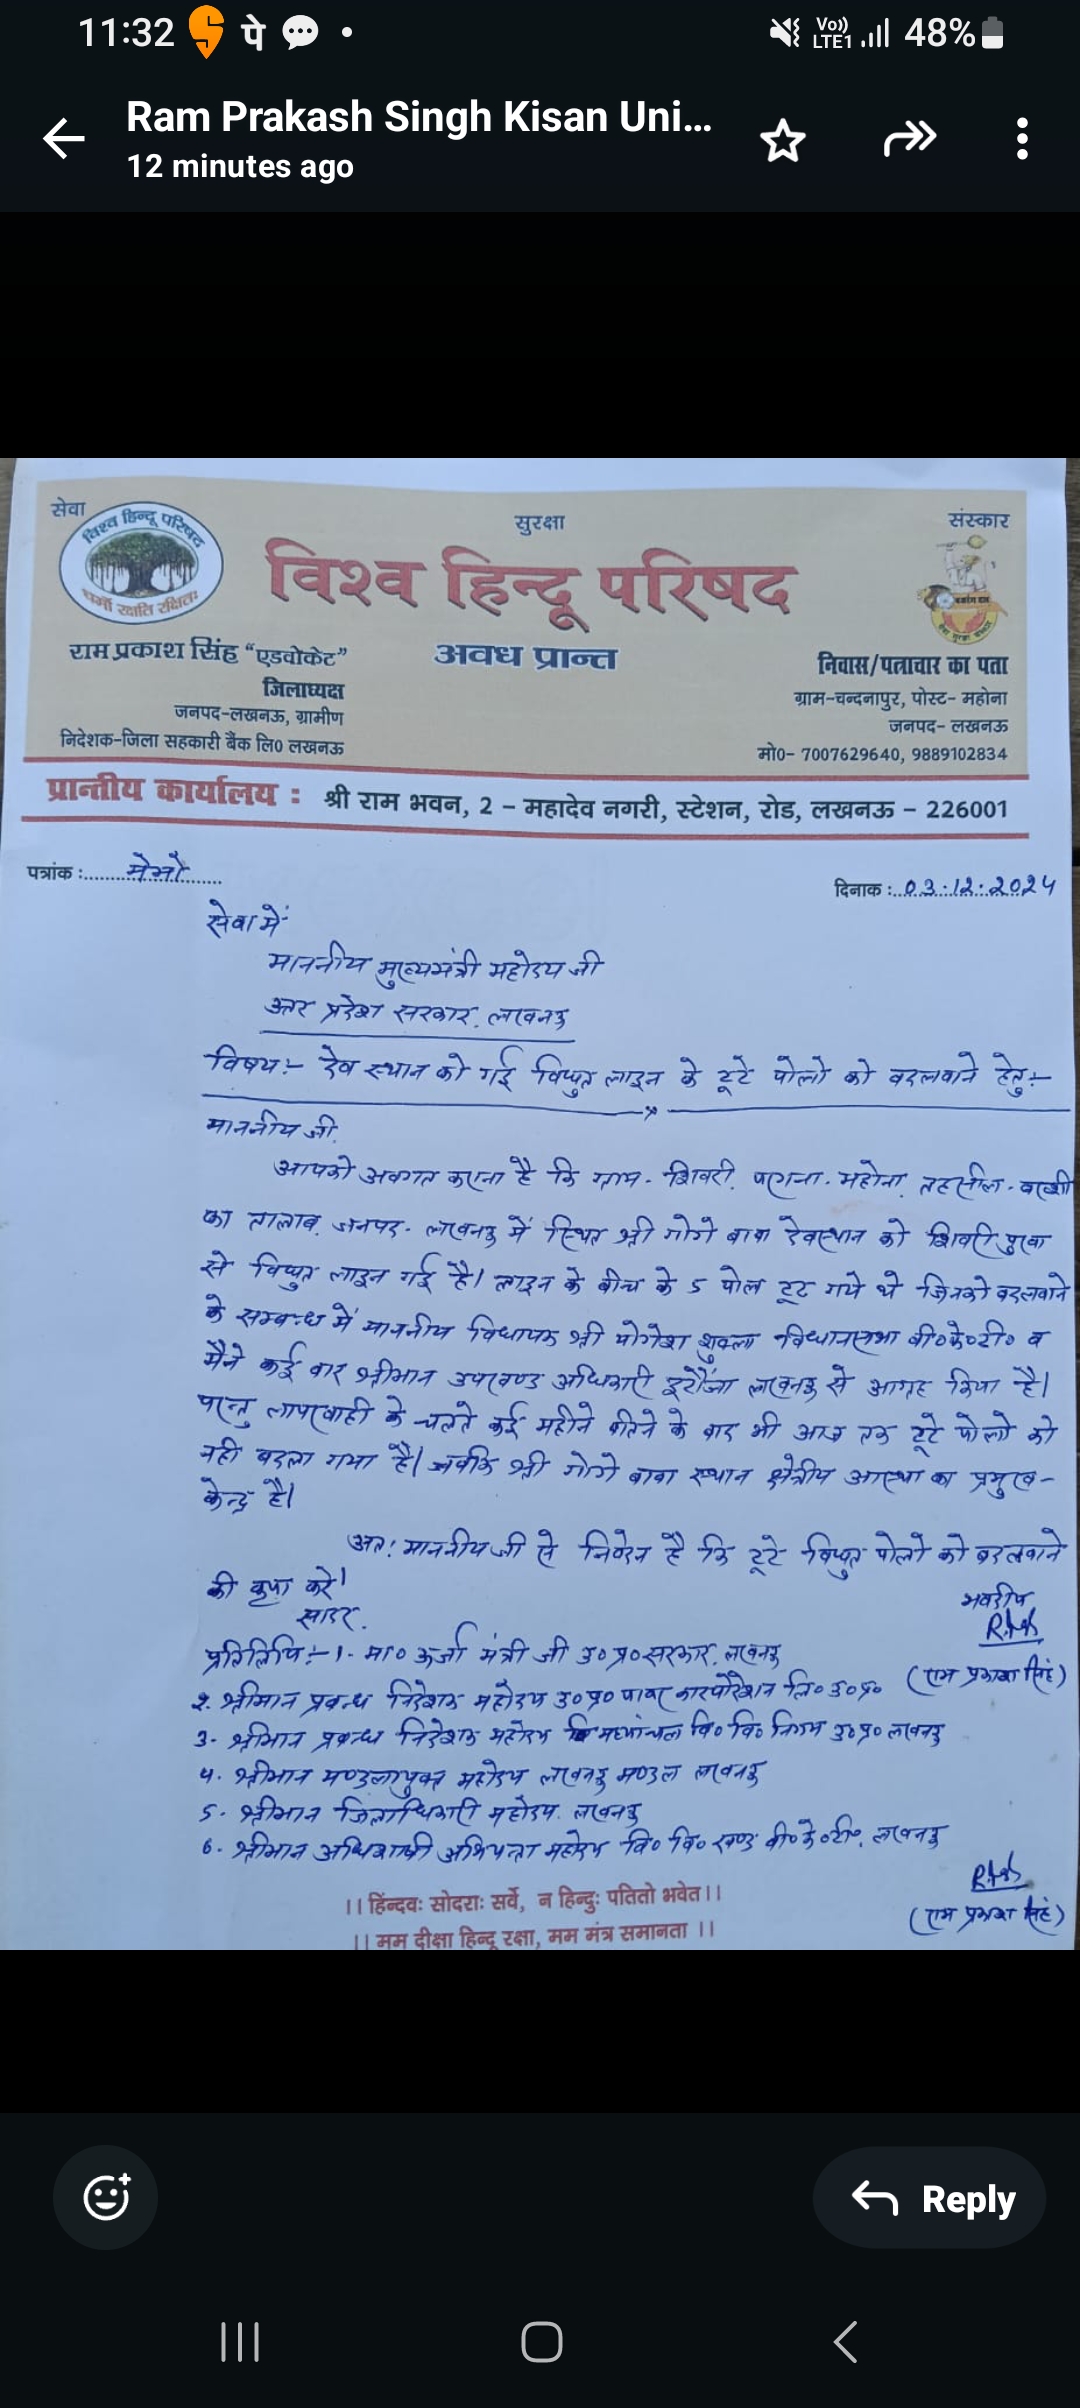 11:32 पे Vo)) LTE1 48%
Ram Prakash Singh Kisan Uni...
12 minutes ago
सेवा सुरक्षा संस्कार
विश्व हिन्दू परिषद
धर्मो रक्षति रक्षितः
विश्व हिन्दू परिषद
राम प्रकाश सिंह “एडवोकेट” अवध प्रान्त निवास/पत्राचार का पता
जिलाध्यक्ष ग्राम-चन्दनापुर, पोस्ट- महोना
जनपद-लखनऊ, ग्रामीण जनपद- लखनऊ
निदेशक-जिला सहकारी बैंक लि0 लखनऊ मो0- 7007629640, 9889102834
प्रान्तीय कार्यालय : श्री राम भवन, 2 - महादेव नगरी, स्टेशन, रोड, लखनऊ - 226001
पत्रांक :........मेमो........ दिनाक :..03.12.2024
सेवा में
माननीय मुख्यमंत्री महोदय जी
उत्तर प्रदेश सरकार. लखनऊ
विषय:- देव स्थान को गई विद्युत लाइन के टूटे पोलो को बदलवाने हेतु:-
माननीय जी.
आपको अवगत कराना है कि ग्राम- शिवरी. परगना- महोना. तहसील- बख्शी
का तालाब. जनपद- लखनऊ में स्थित श्री गोगे बाबा देवस्थान को शिवरी पुरवा
से विद्युत लाइन गई है। लाइन के बीच के 5 पोल टूट गये थे जिनको बदलवाने
के सम्बन्ध में माननीय विधायक श्री योगेश शुक्ला विधानसभा बी०के०टी० व
मैने कई बार श्रीमान उपखण्ड अधिकारी इटौंजा लखनऊ से आग्रह किया है।
परन्तु लापरवाही के चलते कई महीने बीतने के बाद भी आज तक टूटे पोलो को
नही बदला गया है। जबकि श्री गोगे बाबा स्थान क्षेत्रीय आस्था का प्रमुख-
केन्द्र है।
अत: माननीय जी से निवेदन है कि टूटे विद्युत पोलो को बदलवाने
की कृपा करे।
सादर. भवदीय
प्रतिलिपि:- 1- मा० ऊर्जा मंत्री जी उ०प्र०सरकार. लखनऊ
(राम प्रकाश सिंह)
2. श्रीमान प्रबन्ध निदेशक महोदय उ०प्र० पावर कारपोरेशन लि० उ०प्र०
3- श्रीमान प्रबन्ध निदेशक महोदय मध्यांचल वि० वि० निगम उ०प्र० लखनऊ
4. श्रीमान मण्डलायुक्त महोदय लखनऊ मण्डल लखनऊ
5- श्रीमान जिलाधिकारी महोदय. लखनऊ
6- श्रीमान अधिशाषी अभियन्ता महोदय वि० वि० खण्ड बी०के०टी०. लखनऊ
।। हिंदवः सोदराः सर्वे, न हिन्दुः पतितो भवेत।।
(राम प्रकाश सिंह)
।। मम दीक्षा हिन्दू रक्षा, मम मंत्र समानता ।।
Reply